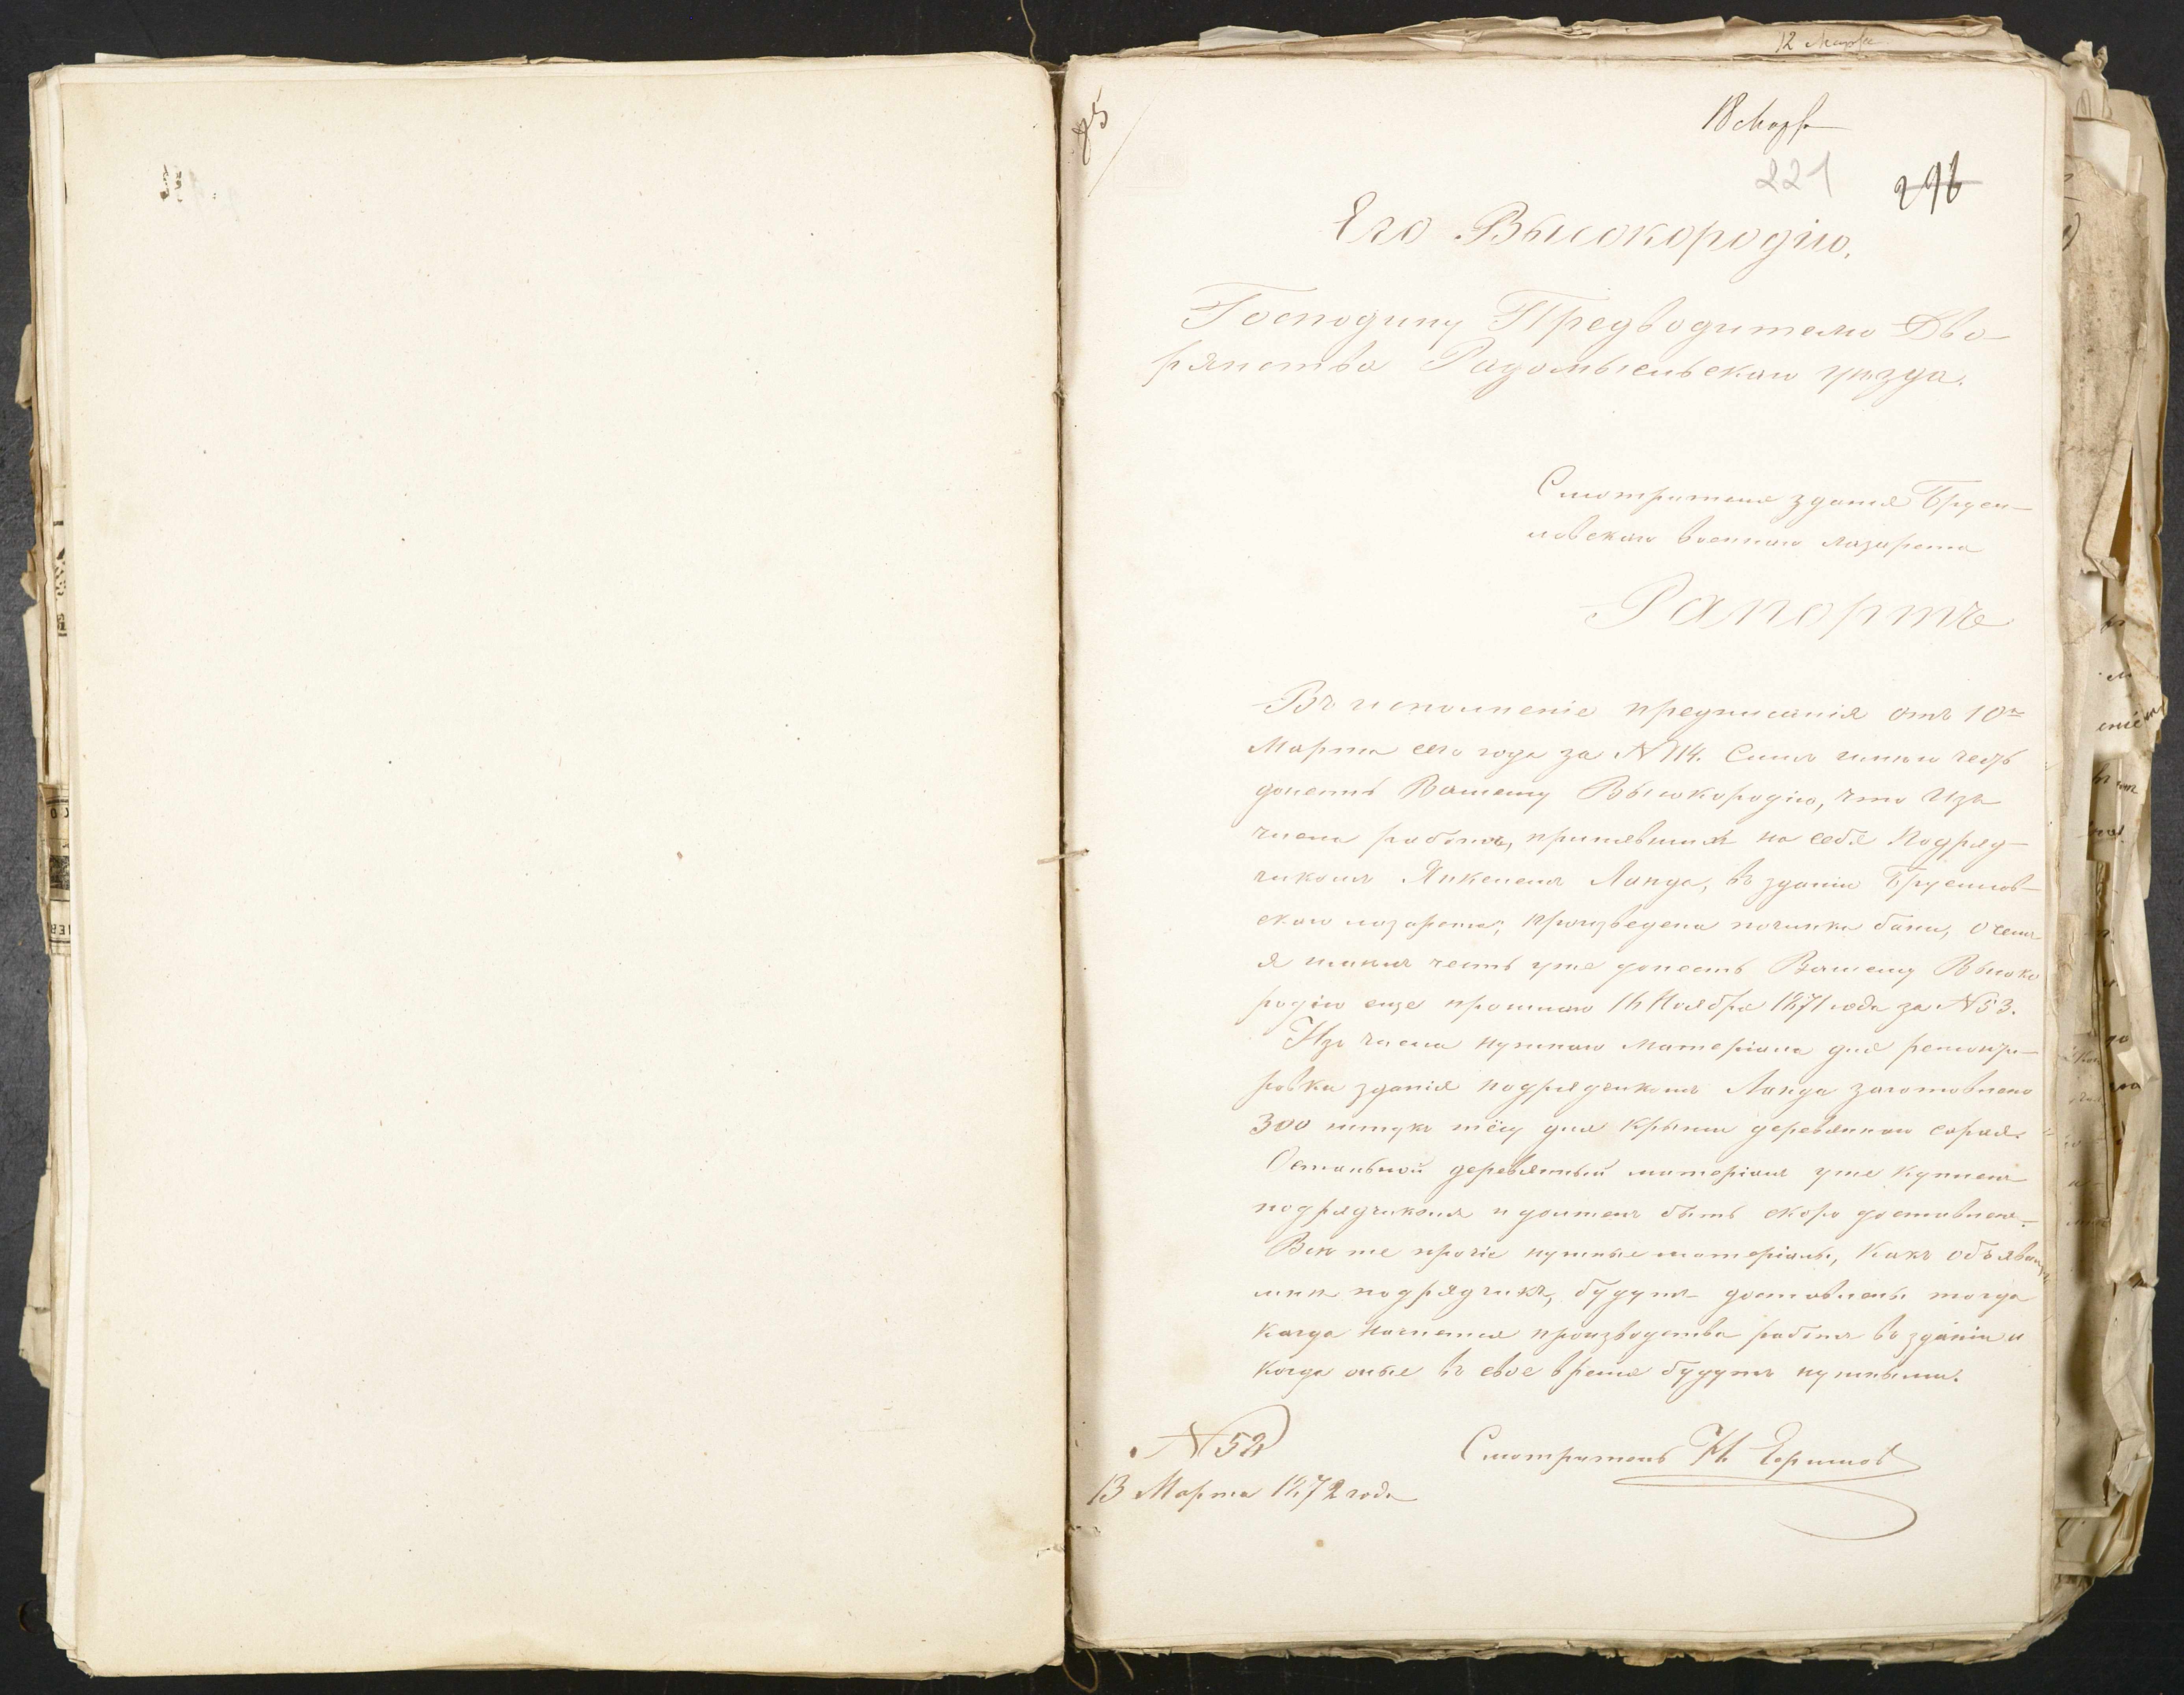 12 Марта
85
18 Март
221
296
Его Высокородію,
Господину Предводителю Дво-
рянства Радомысльскаго уѣзда.
Смотрителя зданія Бруси-
ловскаго военнаго лазарета
Рапортъ
Въ исполненіе предписанія отъ 10го
Марта сего года за № 114. Симъ имѣю честь
донести Вашему Высокородію, что изъ
числа работъ, принявшихъ на себя Подряд-
чикомъ Янкелемъ Ланда, въ зданіи Брусилов-
скаго лазарета; произведена починка бани, о чемъ
я имѣлъ честь уже донесть Вашему Высоко
родію еще прошлаго 16 Ноября 1871 года за № 53.
Изъ числа нужнаго матеріала для ремонти-
ровки зданія подрядчикомъ Ланда заготовлено
300 штукъ тёсу для крыши деревяннаго сарая.
Остальной деревянный матеріалъ уже купленъ
подрядчикомъ и долженъ быть скоро доставленъ.
Всѣ же прочіе нужные матеріалы, какъ объявилъ
мнѣ подрядчикъ, будутъ доставлены тогда
когда начнется производство работъ въ зданіи и
когда оные въ свое время будутъ нужными.
№ 52
Смотритель
13 Марта 1872 года